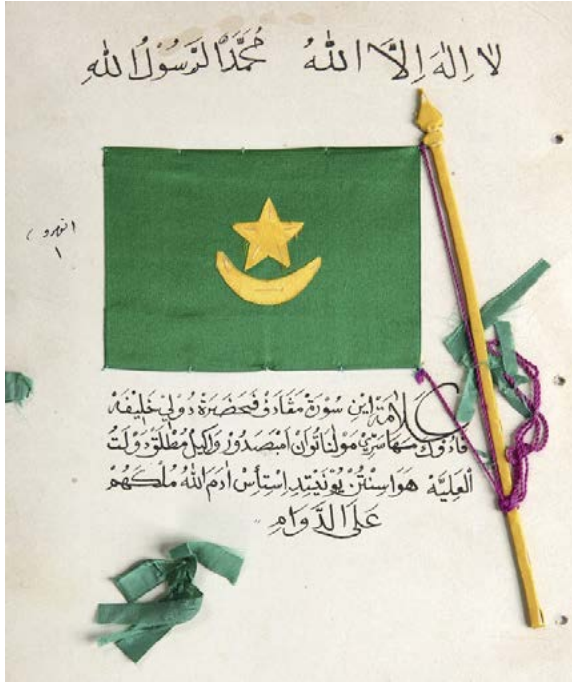 لَا اِلٰهَ اِلَّا اللهُ مُحَمَّدًا الرَّسُوْلُ اللهِ
١
علامة اين سورة مڠادڤ فحضرة دولي خليفه
فادوك مهاسري مولانا توان امبصدور واكيل مطلق دولت
العليه هواسنتن يونيتد استأس ادم الله ملكهم
على الدوام